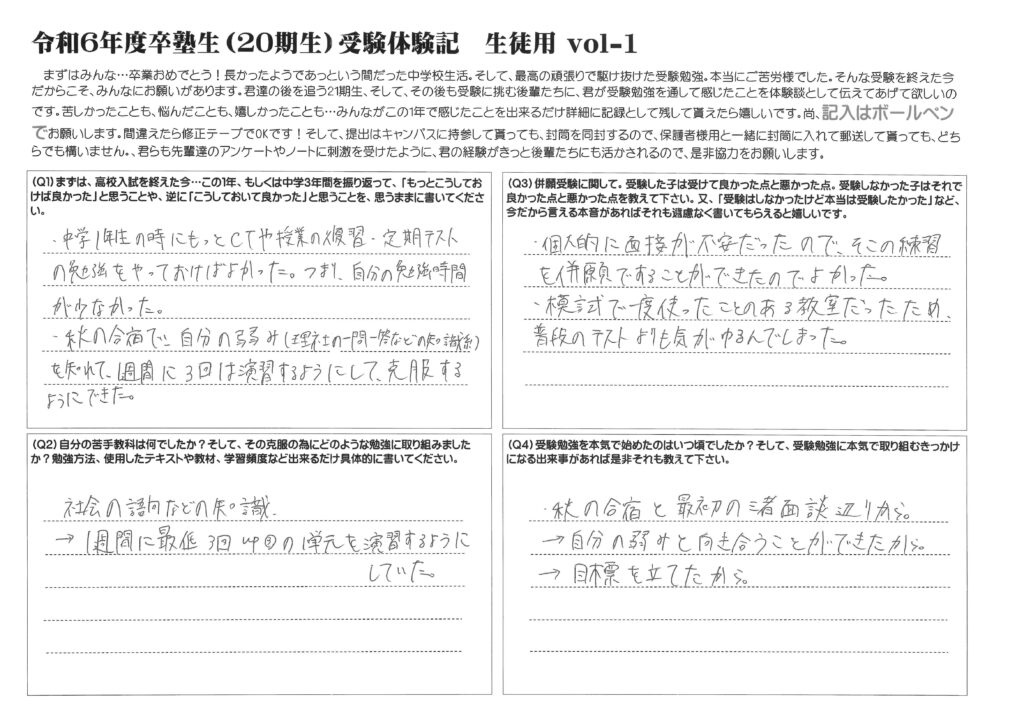 令和6年度卒塾生(20期生)受験体験記 生徒用 vol-1
まずはみんな…卒業おめでとう！長かったようであっという間だった中学校生活。そして、最高の頑張りで駆け抜けた受験勉強。本当にご苦労様でした。そんな受験を終えた今
だからこそ、みんなにお願いがあります。君達の後を追う21期生、そして、その後も受験に挑む後輩たちに、君が受験勉強を通して感じたことを体験談として伝えてあげて欲しいの
です。苦しかったことも、悩んだことも、嬉しかったことも…みんながこの1年で感じたことを出来るだけ詳細に記録として残して貰えたら嬉しいです。尚、記入はボールペン
でお願いします。間違えたら修正テープでOKです！そして、提出はキャンパスに持参して貰っても、封筒を同封するので、保護者様用と一緒に封筒に入れて郵送して貰っても、どち
らでも構いません。、君らも先輩達のアンケートやノートに刺激を受けたように、君の経験がきっと後輩たちにも活かされるので、是非協力をお願いします。
(Q1)まずは、高校入試を終えた今…この1年、もしくは中学3年間を振り返って、「もっとこうしてお
けば良かった」と思うことや、逆に「こうしておいて良かった」と思うことを、思うままに書いてくださ
い。
・中学1年生の時にもっとCTや授業の復習・定期テスト
の勉強をやっておけばよかった。つまり、自分の勉強時間
が少なかった。
・秋の合宿で、自分の弱み(理社の一問一答などの知識系)
を知れて、1週間に3回は演習するようにして、克服する
ようにできた。
(Q2)自分の苦手教科は何でしたか？そして、その克服の為にどのような勉強に取り組みました
か？勉強方法、使用したテキストや教材、学習頻度など出来るだけ具体的に書いてください。
社会の語句などの知識
→1週間に最低3回 の単元を演習するように
していた。
(Q3)併願受験に関して。受験した子は受けて良かった点と悪かった点。受験しなかった子はそれで
良かった点と悪かった点を教えて下さい。又、「受験はしなかったけど本当は受験したかった」など、
今だから言える本音があればそれも遠慮なく書いてもらえると嬉しいです。
・個人的に面接が不安だったので、そこの練習
を併願ですることができたのでよかった。
・模試で一度使ったことのある教室だったため、
普段のテストよりも気がゆるんでしまった。
(Q4)受験勉強を本気で始めたのはいつ頃でしたか？そして、受験勉強に本気で取り組むきっかけ
になる出来事があれば是非それも教えて下さい。
・秋の合宿と最初の三者面談辺りから。
→自分の弱みと向き合うことができたから。
→目標を立てたから。